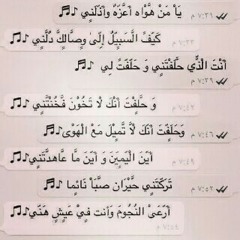 يَا مَنْ هَوَاه أعَزَهُ وأذلَني ♫♬
٧:٣٦ م
كَيْفَ السَبيلُ إلىَ وصَالكَ دُلَني ♫♬
٧:٣٧ م
أنتَ الذَي حَلَفتَني وَ حَلَفتَ لِي ♫♬
وَ حَلَفتَ أنكَ لا تَخُونَ فَخُنتَني ♫♬
وحَلَفتَ أنكَ لاَ تَميلَ مَعْ الهَوىَ ♫♬
٧:٤٦ م
أينَ اليَمينَ وَ أينَ مَا عَاهدتَني ♫♬
٧:٤٩ م
تَركتَني حَيْرَان صَبْاً نَائما ♫♬
٧:٥٢ م
أرْعَىَ النُجُومَ وَانت فيْ عَيشٍ هَنّي ♫♬